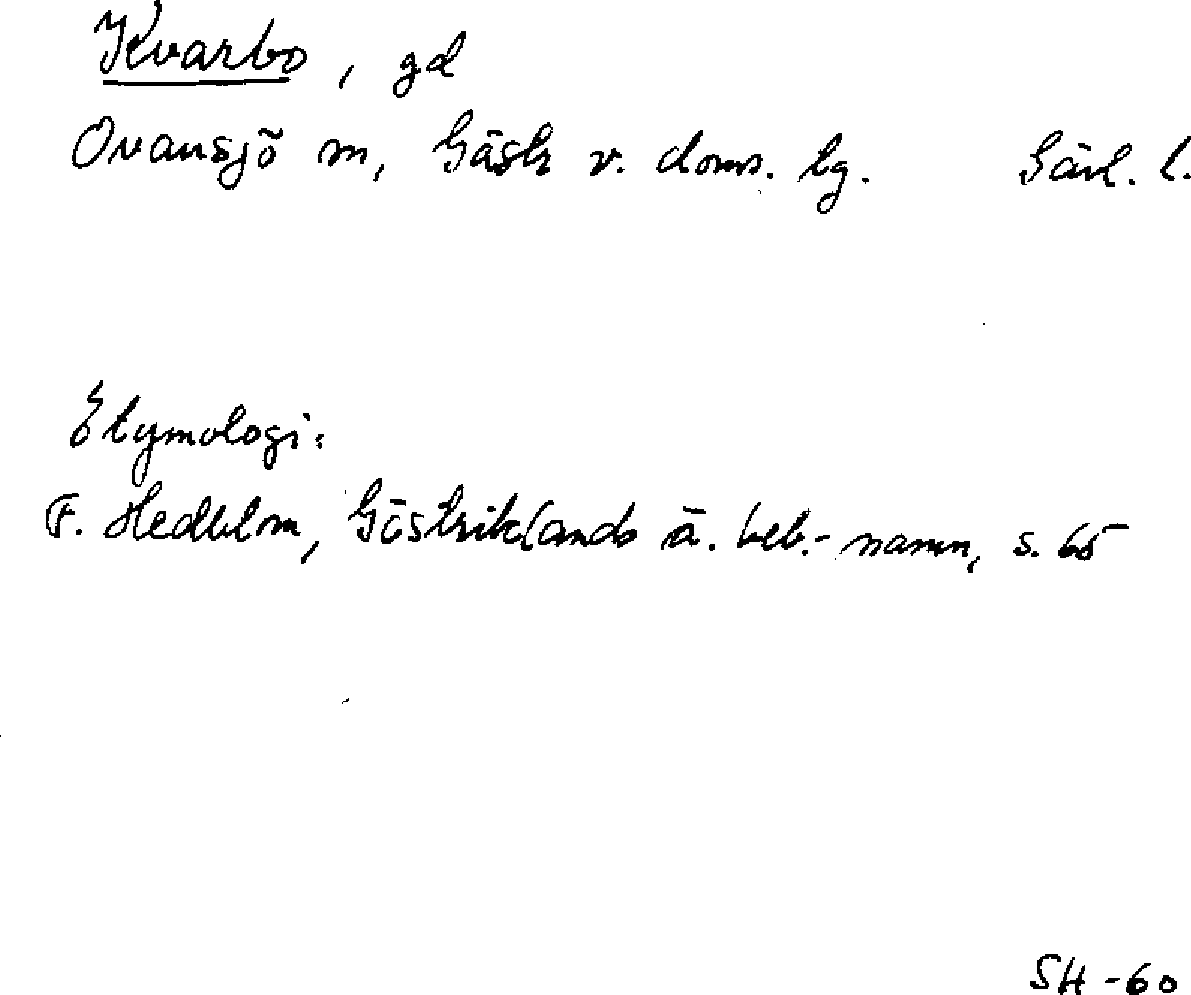 Kvarbo, gd
Ovansjö sn, Gästr v. doms. lg. Gävl. l.
Etymologi:
F. Hedblom, Gästriklands ä. beb.-namn, s. 65
SH -60